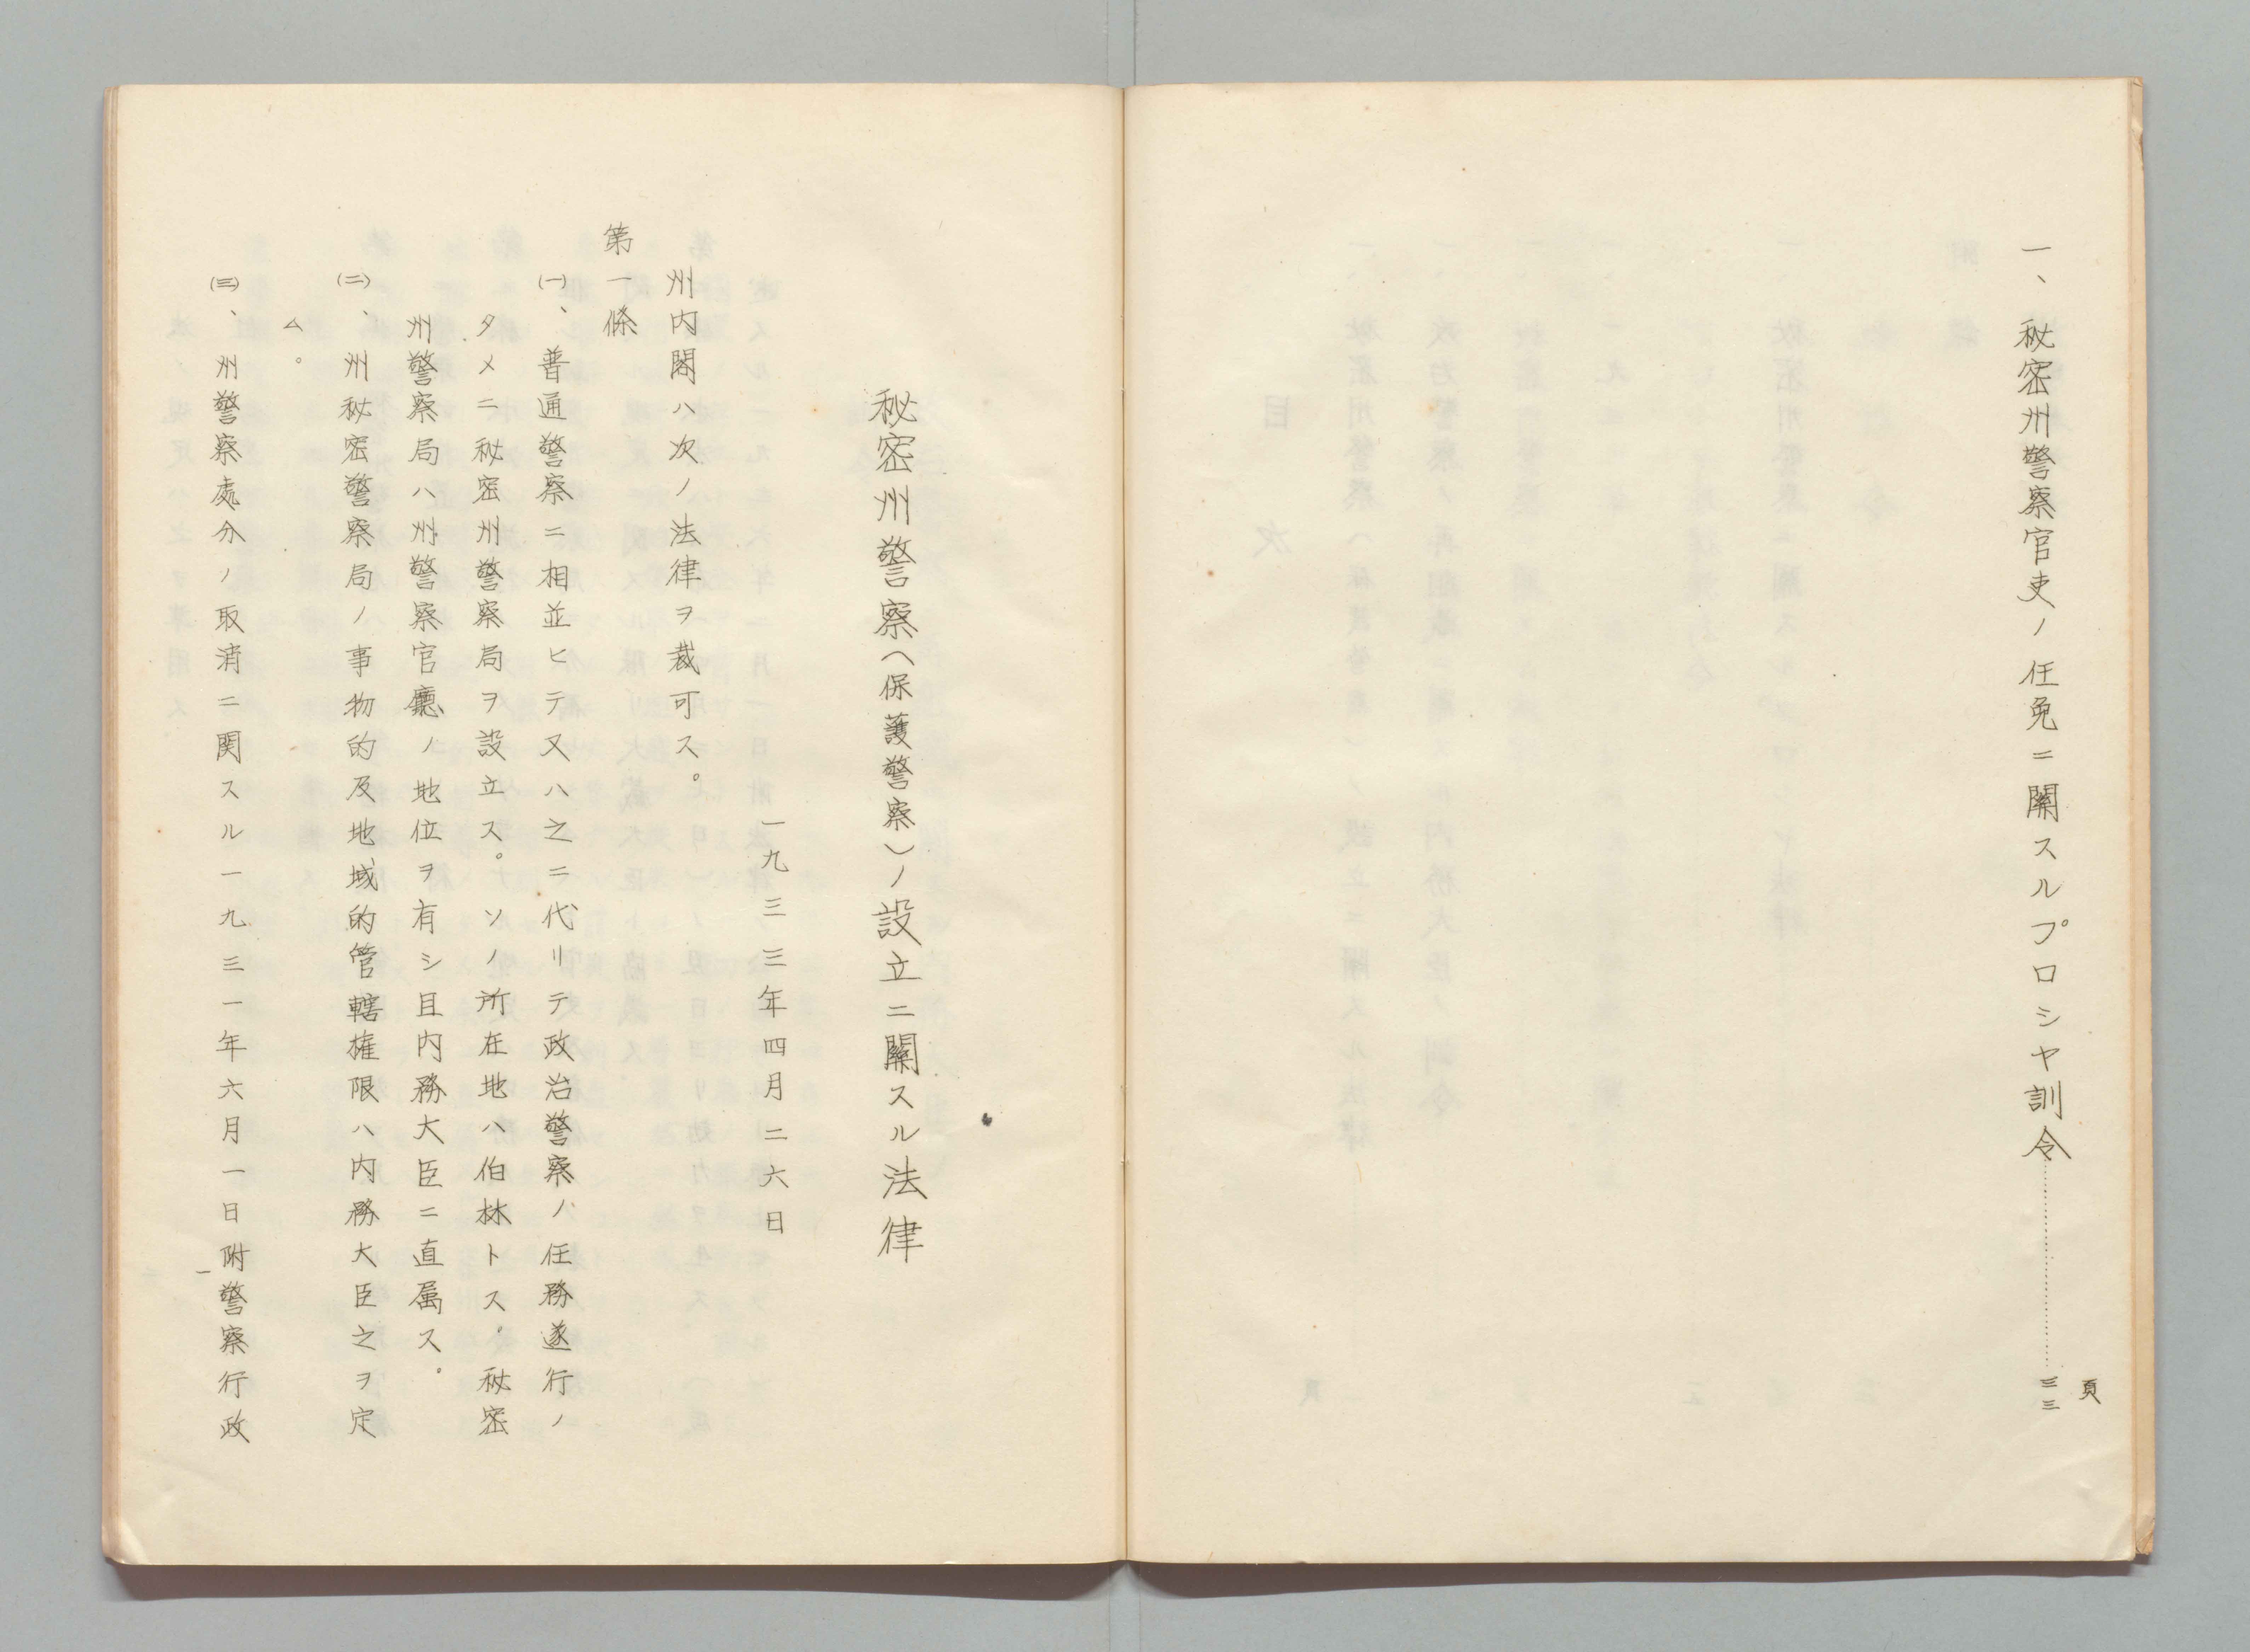 頁
一、秘密州警察官吏ノ任免ニ關スルプロシヤ訓令……………………三三
秘密州警察（保護警察）ノ設立ニ關スル法律
一九三三年四月二六日
州内閣ハ次ノ法律ヲ裁可ス。
第一條
㈠、普通警察ニ相並ヒテ又ハ之ニ代リテ政治警察ノ任務遂行ノ
タメニ秘密州警察局ヲ設立ス。ソノ所在地ハ伯林トス。秘密
州警察局ハ州警察官廳ノ地位ヲ有シ且内務大臣ニ直属ス。
㈡、州秘密警察局ノ事物的及地域的管轄権限ハ内務大臣之ヲ定
ム。
㈢、州警察處分ノ取消ニ関スル一九三一年六月一日附警察行政
一